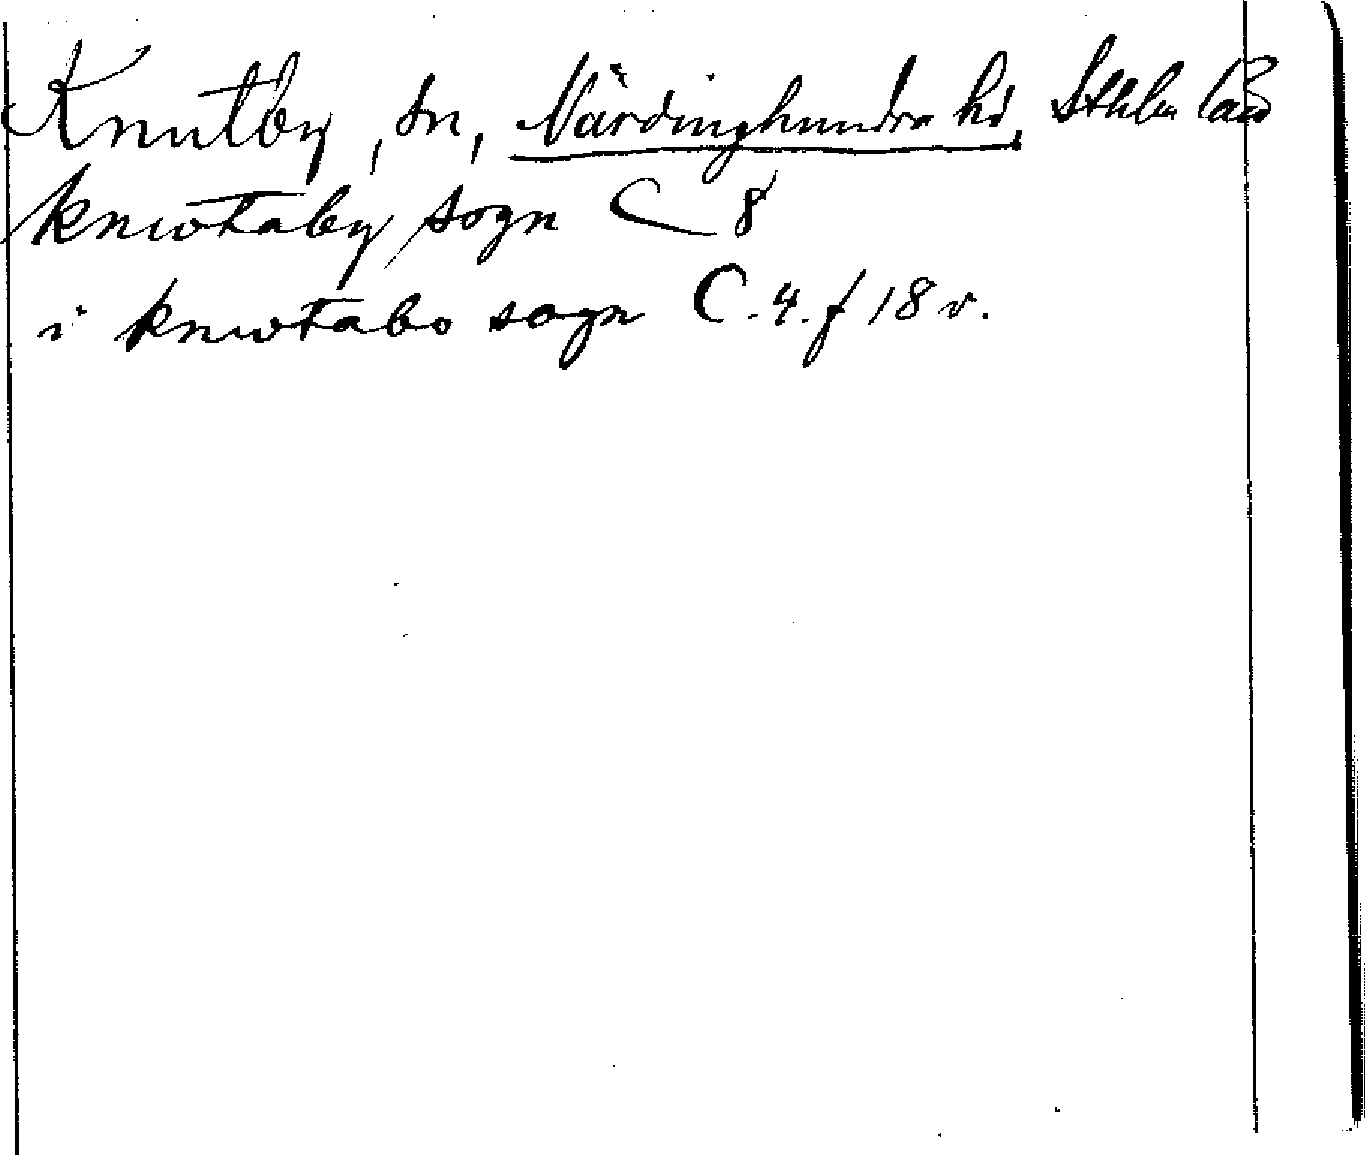 Knutby, sn, Närdinghundra hd, Sthlm län
knwtaby sogn C 8
i knwtabo sogn C.4.f 18 v.